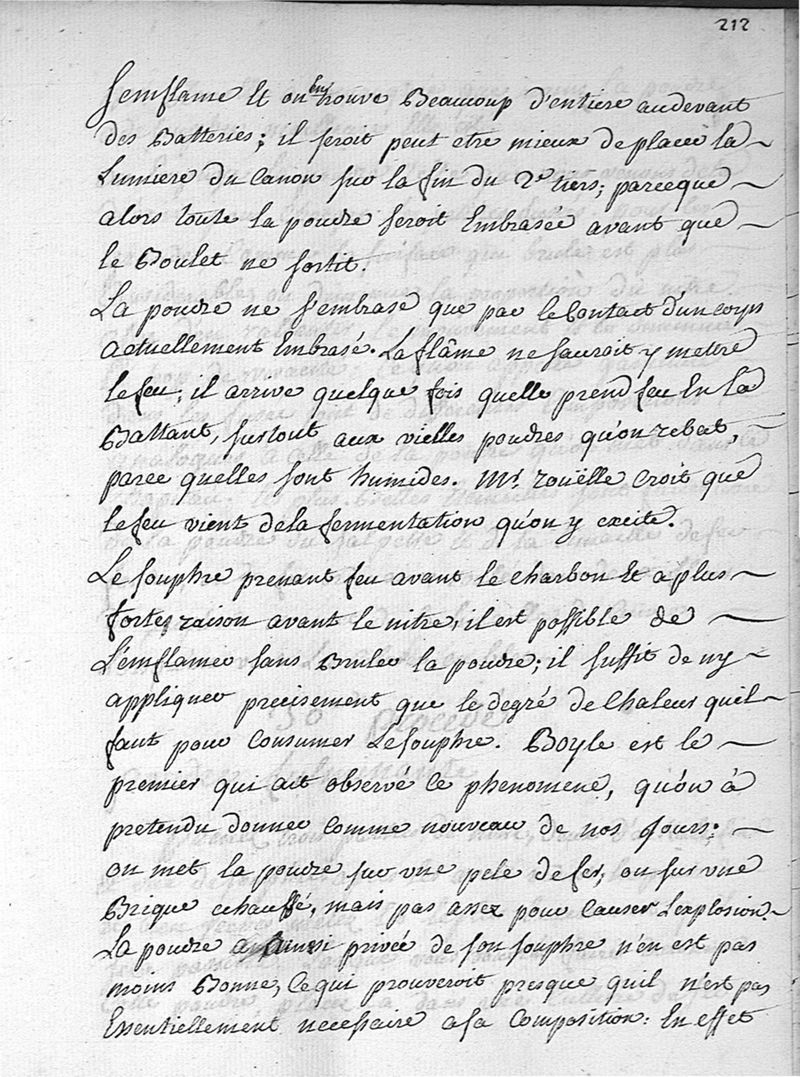 212
S'emflame Et on en trouve Beaucoup d'entiere au devant
des Batteries; il seroit peut etre mieux de placer la
Lumiere du Canon sur la fin du 2e tiers; parceque
alors toute la poudre seroit Embrasée avant que
le Boulet ne sortit.
La poudre ne s'embrase que par le Contact d'un corps
actuellement Embrasé. La flâme ne sauroit y mettre
le feu; il arrive quelque fois quelle prend feu En la
Battant, surtout aux vielles poudres qu'on rebat,
parce quelles sont humides. Mr. roüelle Croit que
le feu vient de la fermentation qu'on y excite.
Le souphre prenant feu avant le charbon Et a plus
fortes raison avant le nitre, il est possible de
L'emflamer sans Bruler la poudre; il suffit de ny
appliquer precisement que le degré de Chaleur quil
faut pour Consumer Le souphre. Boyle est le
premier qui ait observé Ce phenomene, qu'on à
pretendu donner Comme nouveau de nos Jours;
on met la poudre sur vne pele de fer, ou sur vne
Brique echauffé, mais pas assez pour Causer L'explosion.
La poudre ainsi privée de son souphre n'en est pas
moins Bonne, Ce qui prouveroit presque quil n'est pas
Essentiellement necessaire a sa Composition: En effet